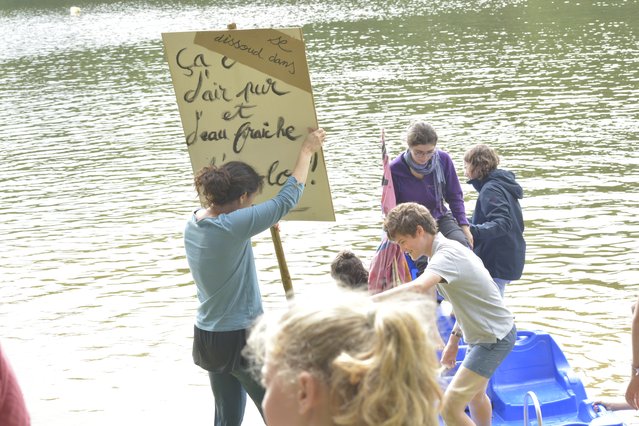 se
dissoud dans
Ça
d'air pur
et
d'eau fraîche
!